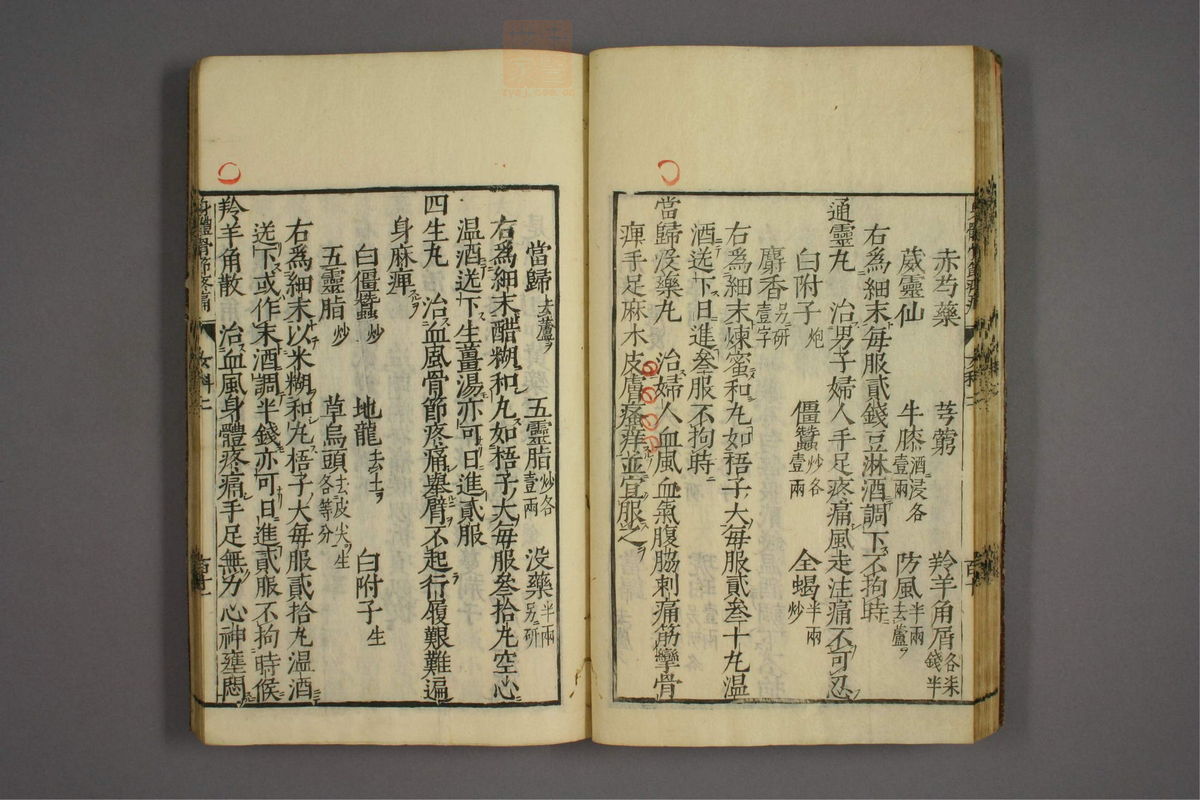 赤芍藥 芎藭 羚羊角屑各柒錢半
葳靈仙 牛膝酒浸各壹兩 防風半兩去蘆
右爲細末毎服貳錢豆淋酒調下不拘時
通靈丸 治男子婦人手足疼痛風走注痛不可忍
白附子炮 僵蠶炒各壹兩 全蝎半兩炒
麝香壹字另研
右爲細末煉蜜和丸如梧子大毎服貳叁十丸温
酒送下日進叁服不拘時
當歸没藥丸 治婦人血風血氣腹脇刺痛筋攣骨
痺手足麻木皮膚瘙痒並宜服之
當歸去蘆 五靈脂炒各壹兩 没藥半兩另研
右爲細末醋糊和丸如梧子大毎服叁拾丸空心
温酒送下生薑湯亦可日進貳服
四生丸 治血風骨節疼痛舉臂不起行履艱難遍
身麻痺
白僵蠶炒 地龍去土 白附子生
五靈脂炒 草烏頭去皮尖生各等分
右爲細末以米糊和丸梧子大毎服貳拾丸温酒
送下或作末酒調半錢亦可日進貳服不拘時候
羚羊角散 治血風身體疼痛手足無力心神壅悶
身體骨節疼痛 女科二